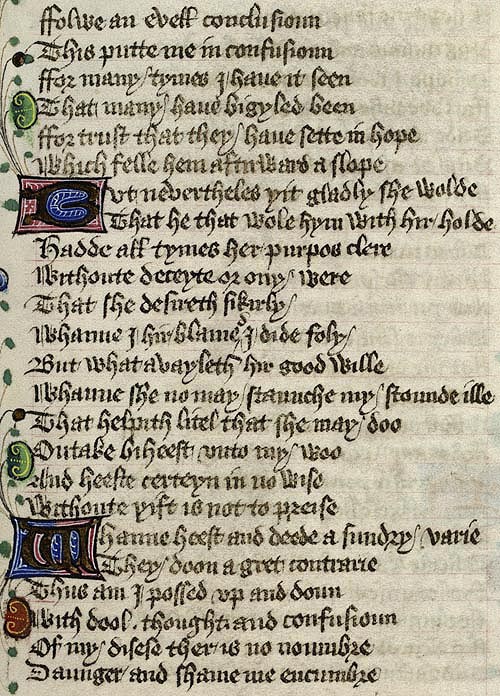 ffolwe an evell conclusioun
This putte me in confusioun
ffor many tymes I have it seen
That many have bigyled been
ffor trust that they have sette in hope
Which felle hem aftirward a slope
But nevertheles yit gladly she wolde
That he that wole hym with hir holde
Hadde all tymes her purpos clere
Withoute deceyte or ony were
That she desireth sikirly
Whanne I hir blame I dide foly
But what avayleth hir good wille
Whanne she no may staunche my stounde ille
That helpith litel that she may doo
Outake biheest unto my woo
And heeste certeyn in no wise
Withoute yift is not to preise
Whanne heest and deede a sundry varie
They doon a gret contrarie
Thus am I possed vp and doun
With dool, thought and confusioun
Of my disese ther is no noumbre
Daunger and shame me encumbre